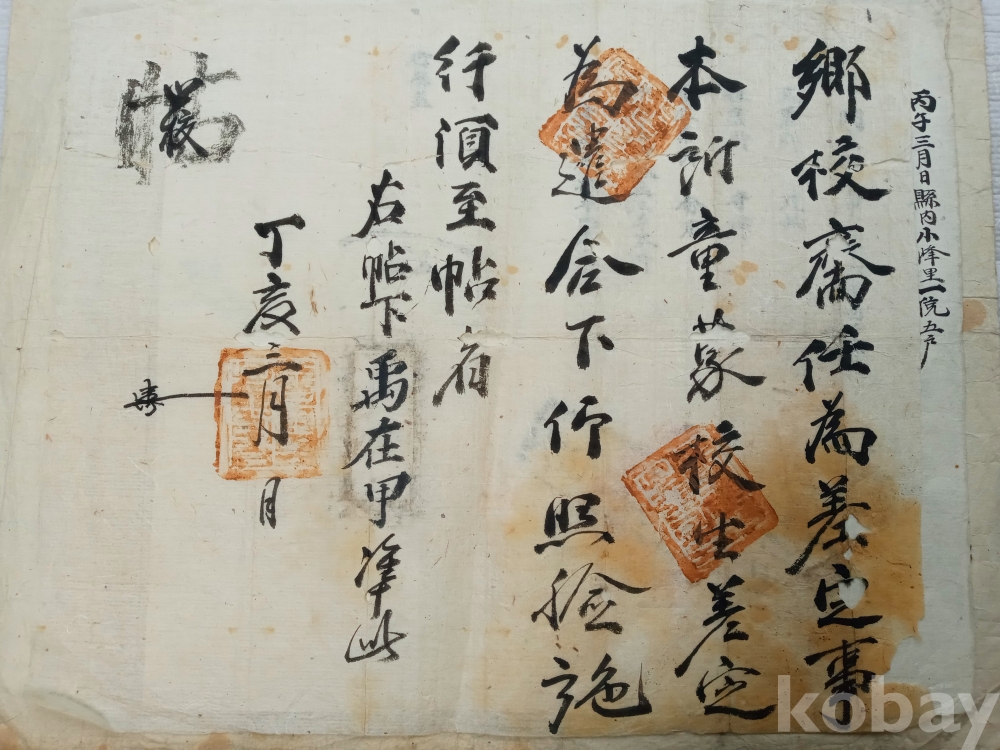 丙午三月日縣內小峰里一院五戶
鄕校齋任為差定事
本所童蒙校生差定
為遣合下仰照驗施
行須至帖者
右帖下禹在甲準此
丁亥三月 日
帖
校
kobay